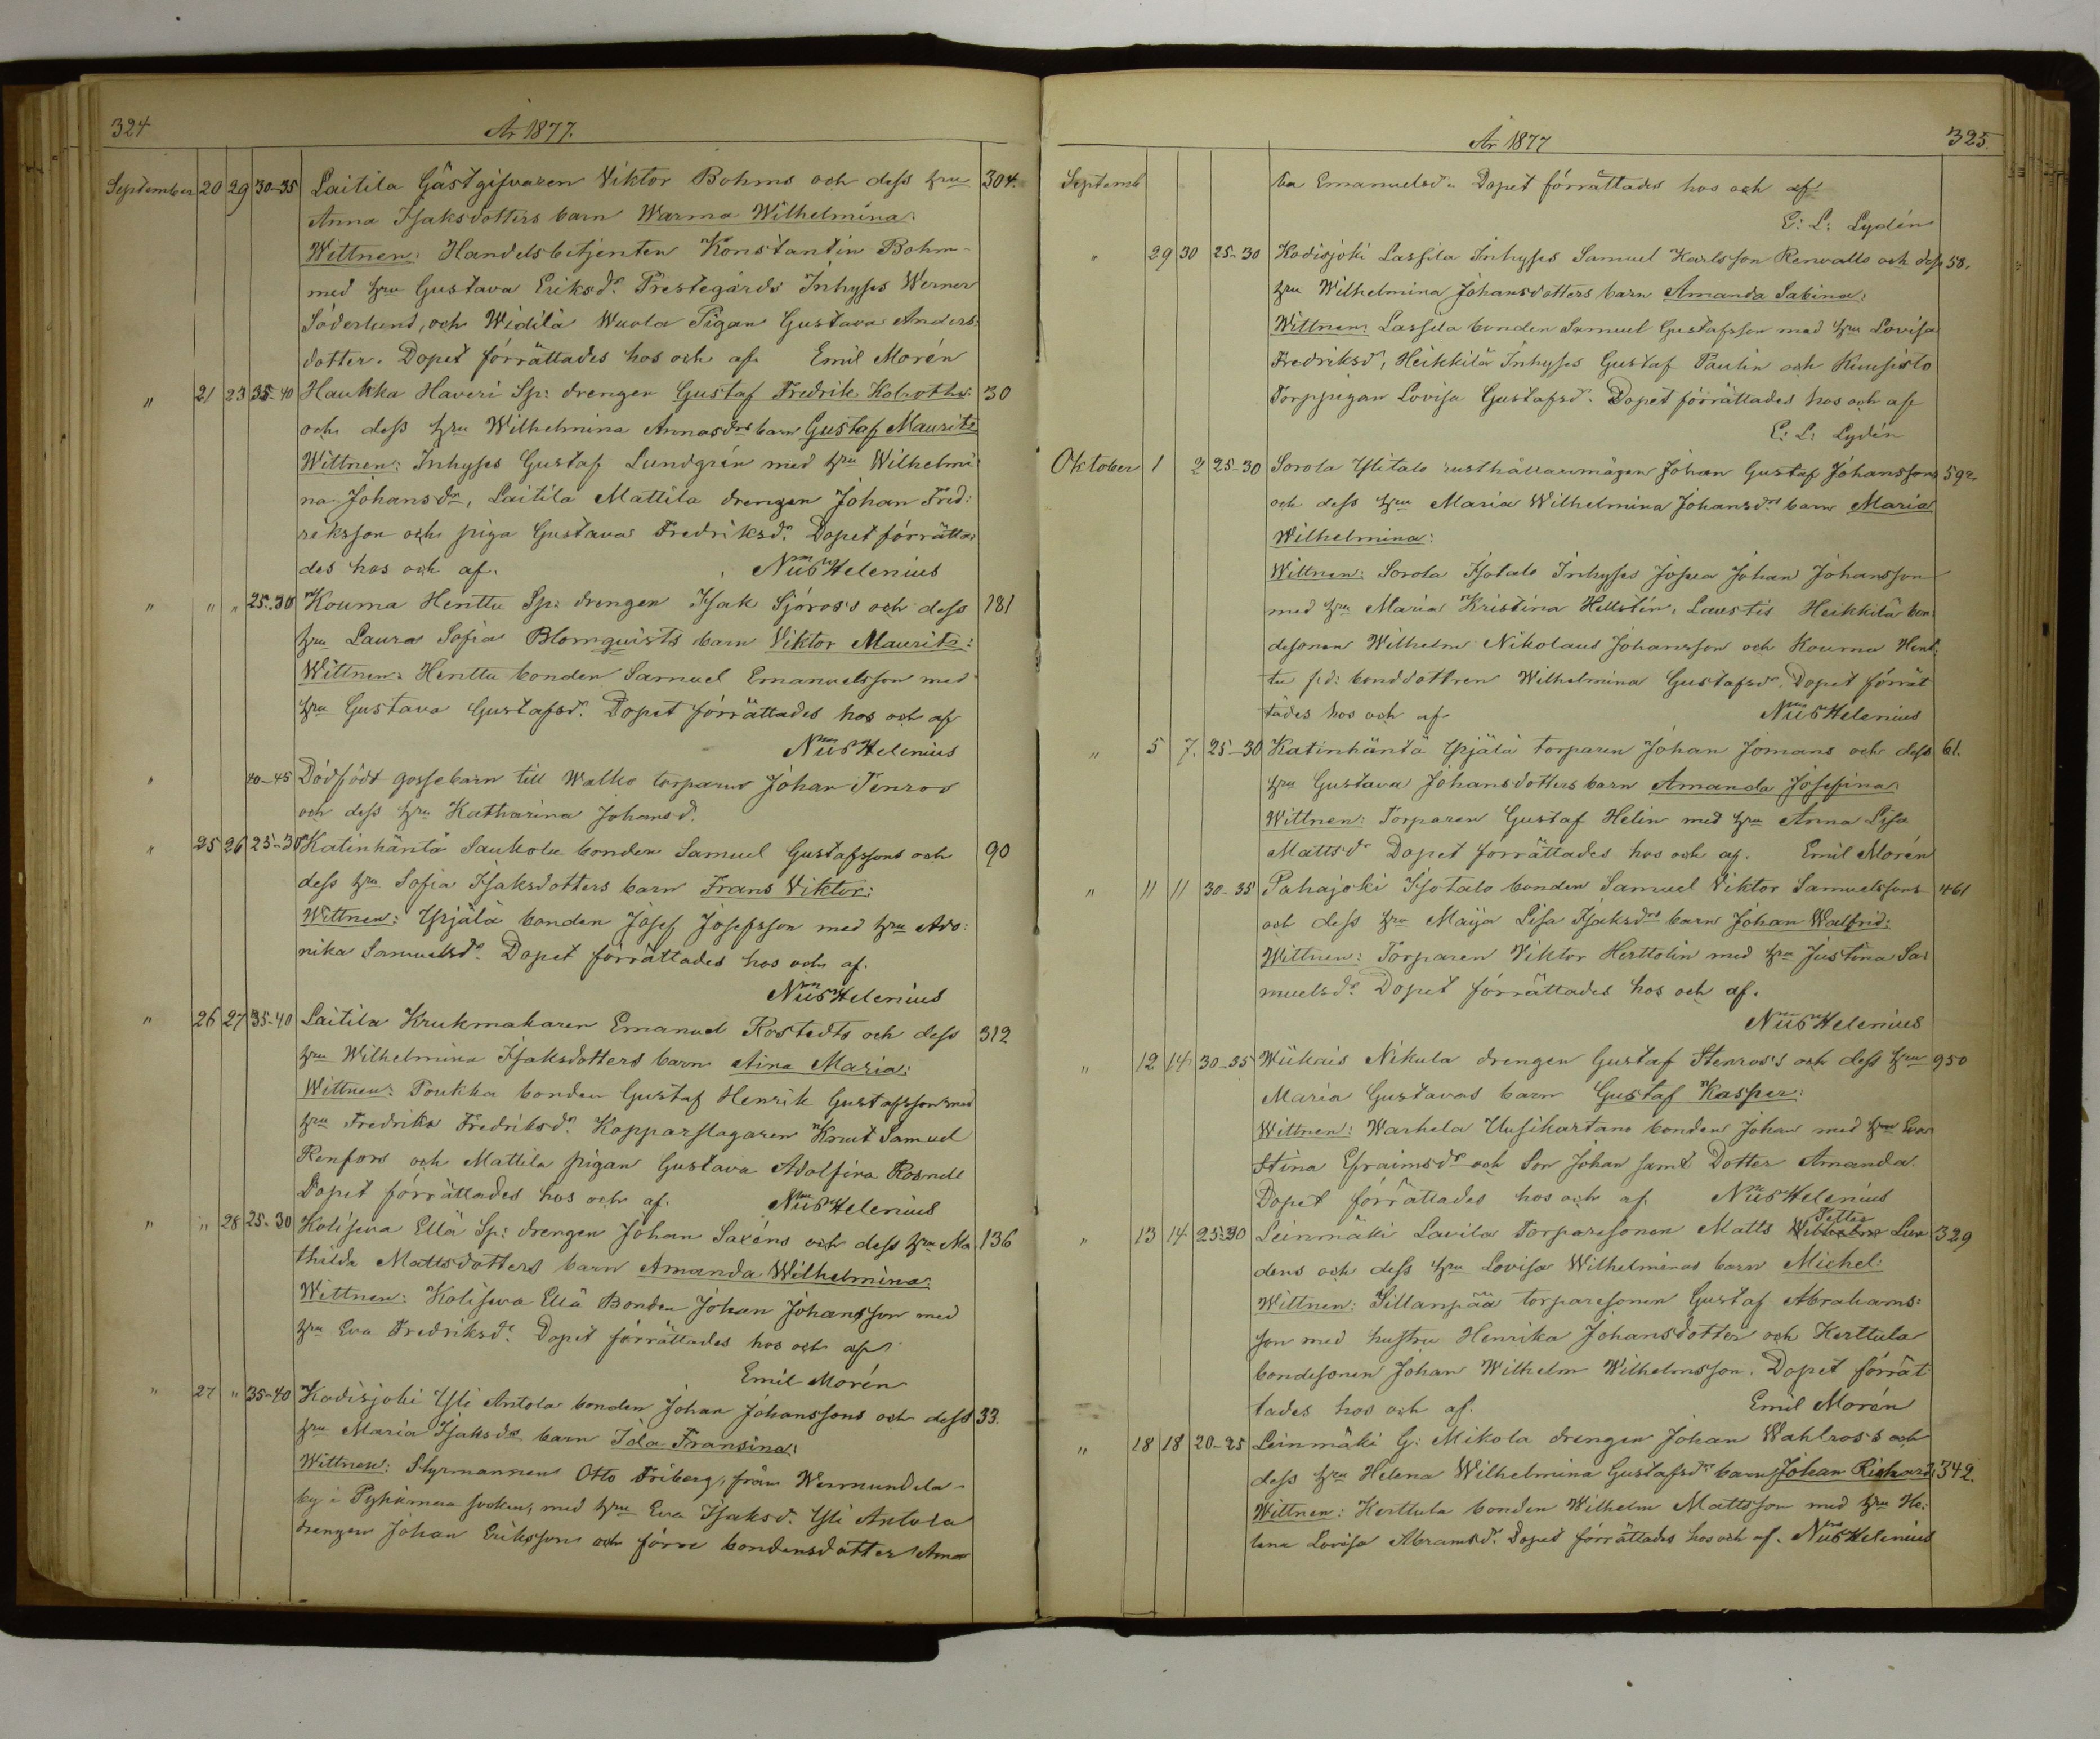 324 År 1877.
September 20 29 30-35 Laitila Gästgifvaren Viktor Bohms och dess hru 304.
Anna Isaksdotters barn Warma Wilhelmina:
Wittnen: Handelsbetjenten Konstantin Bohm
med hru Gustava Eriksdr. Prestegårds Inhyses Werner
Söderlund, och Widilä Wuola Pigan Gustava Anders:
dotter. Dopet förrättades hos och af. Emil Morén
" 21 23 35-40 Haukka Haveri Sp: drengen Gustaf Fredrik Kolroths: 30
och dess hru Wilhelmina Annasdrs barn Gustaf Mauritz
Wittnen: Inhyses Gustaf Lundgrén med hru Wilhelmi:
na Johansdr, Laitila Mattila drengen Johan Fred:
reksson och piga Gustava Fredriksdr. Dopet förrätta:
des hos och af. Helenius
" " " 25-30 Kouma Henttu Sp: drengen Isak Sjöros's och dess 181
hru Laura Sofia Blomquists barn Viktor Mauritz:
Wittnen: Henttu bonden Samuel Emanuelsson med
hru Gustava Gustafsdr. Dopet förrättades hos och af
Helenius
" 40-45 Dödfödt gossebarn till Walko torparen Johan Tenros
och dess hru Katharina Johansd.
" 25 26 25-30 Katinhäntä Saukola bonden Samuel Gustafssons och 90
dess hru Sofia Isaksdotters barn Frans Viktor:
Wittnen: Ypjälä bonden Josef Josefsson med hru Avo:
nika Samuelsdr. Dopet förrättades hos och af.
Helenius
" 26 27 35-40 Laitila Krukmakaren Emanuel Rostedts och dess 312
hru Wilhelmina Isaksdotters barn Aina Maria:
Wittnen: Poukka bonden Gustaf Henrik Gustafsson med
hru Fredrika Fredriksdr. Kopparslagaren Knut Samuel
Renfors och Mattila pigan Gustava Adolfina Rosnell
Dopet förrättades hos och af. Helenius
" " 28 25-30 Koliseva Ellä Sp: drengen Johan Saxéns och dess hru Ma 136
thilda Mattsdotters barn Amanda Wilhelmina:
Wittnen: Koliseva Ellä Bonden Johan Johansson med
hru Eva Fredriksdr. Dopet förrättades hos och af
Emil Morén
" 27 " 35-40 Kodisjoki Yli Antola bonden Johan Johanssons och dess 33.
hru Maria Isaksdrs barn Ida Fransina:
Wittnen: Styrmannen Otto Friberg, från Wermundela
by i Pyhämaa socken, med hru Eva Isaksd. Yli Antola
drengen Johan Eriksson och förre bondensdotter Aman
År 1877 325.
Septemb da Emanuelsdr. Dopet förrättades hos och af
E: L: Lydén
" 29 30 25-30 Kodisjoki Lassila Inhyses Samuel Karlsson Renvalls och dess 58.
hru Wilhelmina Johansdotters barn Amanda Sabina:
Wittnen: Lassila bonden Samuel Gustafsson med hru Lovisa
Fredriksdr, Heikkilä Inhyses Gustaf Paulin och Kuusisto
Torppigan Lovisa Gustafsd. Dopet förrättades hos och af
E: L: Lydén
Oktober 1 2 25-30 Sorola Ylitalo rusthållaremågen Johan Gustaf Johanssons 592.
och dess hru Maria Wilhelmina Johansdrs barn Maria
Wilhelmina:
Wittnen: Sorola Isotalo Inhyses Josua Johan Johansson
med hru Maria Kristina Hellstén, Laustis Heikkilä bon:
desonen Wilhelm Nikolaus Johansson och Kouma Hent:
tu fd: bonddottren Wilhelmina Gustafsdr. Dopet förrät
tades hos och af Helenius
" 5 7. 25-30 Katinhäntä Ypjälä torparen Johan Jomans och dess 61.
hru Gustava Johansdotters barn Amanda Josefina:
Wittnen: Torparen Gustaf Helin med hru Anna Lisa
Mattsdr Dopet förrättades hos och af. Emil Morén
" 11 11 30-35 Pahajoki Isotalo bonden Samuel Viktor Samuelssons 461
och dess hru Maija Lisa Isaksdrs barn Johan Walfrid:
Wittnen: Torparen Viktor Herttolin med hru Justina Sa:
muelsdr. Dopet förrättades hos och af.
Helenius
" 12 14 30-35 Wiikais Nikula drengen Gustaf Stenros's och dess hru 950
Maria Gustavas barn Gustaf Kasper:
Wittnen: Warhela Uusikartano bonden Johan med hru Eva
Stina Efraimsdr och Son Johan samt Dotter Amanda.
Dopet förrättades hos och af. Helenius
" 13 14 25-30 Leinmäki Lavila Torparesonen Matts Wilhelm Lin 329
dens och dess hru Lovisa Wilhelminas barn Michel:
Wittnen: Sillanpää torparesonen Gustaf Abrahams:
son med hustru Henrika Johansdotter och Kerttula
bondesonen Johan Wilhelm Wilhelmsson. Dopet förrät
tades hos och af. Emil Morén
" 18 18 20-25 Leinmäki G: Mikola drengen Johan Wahlros's och
dess hru Helena Wilhelmina Gustafsdrs barn Johan Richard: 342.
Wittnen: Kerttula bonden Wilhelm Mattsson med hru He:
lena Lovisa Abramsd. Dopet förrättades hos och af. Helenius